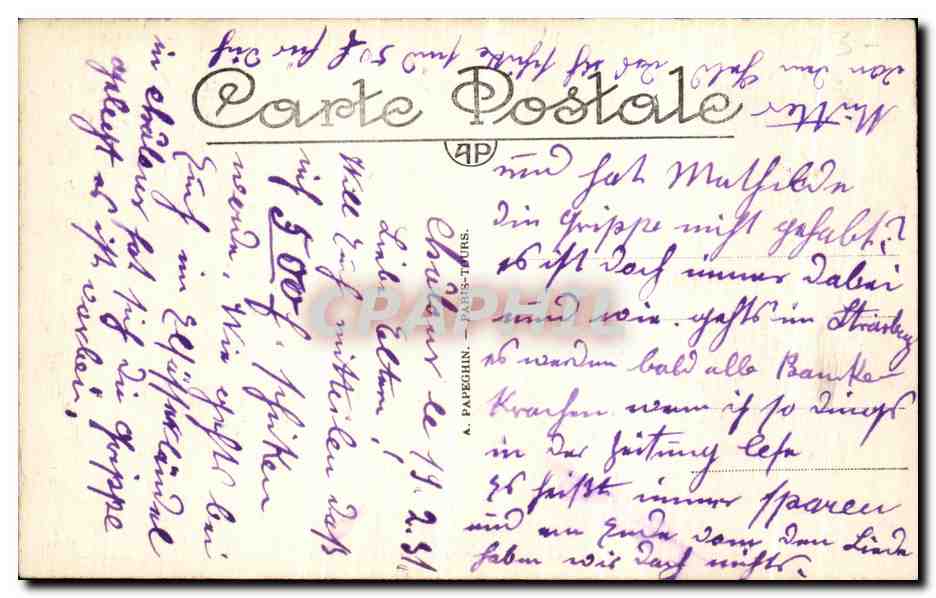 Carte Postale
AP
A. PAPEGHIN. — PARIS-TOURS.
CPAPHIL
Châlons le 19. 2. 31
Liebe Eltern!
Will Euch mitteilen daß
ich 500 f. schicken
werde. Wie gehts bei
Euch im Elsässerländel
in Châlons hat sich die Grippe
gelegt es ist vorbei,
und hat Mathilde
die Grippe nicht gehabt?
es ist doch immer dabei
und wie gehts in Strasburg
es werden bald alle Banke
Krachen wenn ich so dings
in der Zeitung lese
Es heißt immer sparen
und am Ende vom den Liede
haben wir doch nichts.
Mutter
von dem Geld das ich schicke sind 50 f für Dich
3-